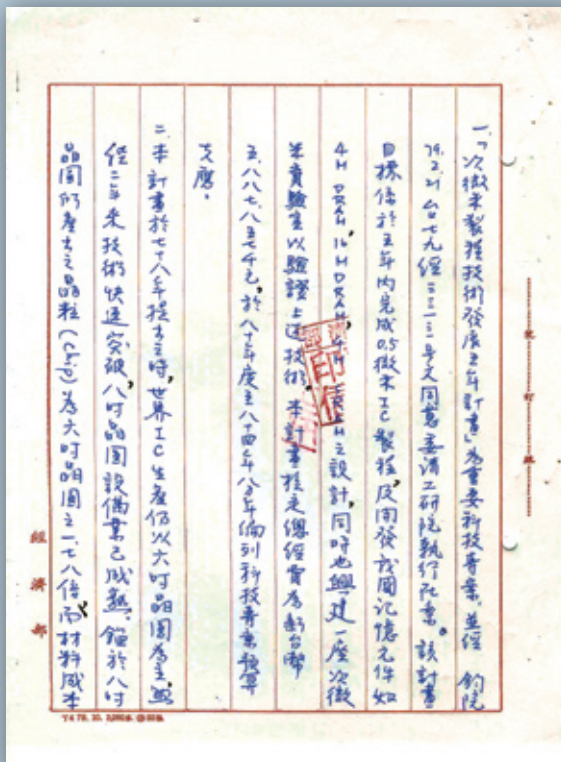 一、「次微米製程技術發展五年計畫」為重要科技專案，並經 鈞院
79.2.21台七九經 號文同意委請工研院執行在案。該計畫
目標係於五年內完成0.5微米IC製程，及開發我國記憶元件如
4M DRAM，16M DRAM，4M SRAM之設計，同時也興建一座次微
米實驗室以驗證上述技術。本計畫核定總經費為新台幣
五、八八七、八五七千元，於八十年度至八十四年度編列科技專案預算
支應。
二、本計畫於七十八年提出之時，世界IC生產仍以六吋晶圓為主，然
經二年來技術快速突破，八吋晶圓設備業已成熟，鑑於八吋
晶圓所產出之晶粒(chip)為六吋晶圓之一.七八倍，而材料成本
經濟部
裝訂線
印信